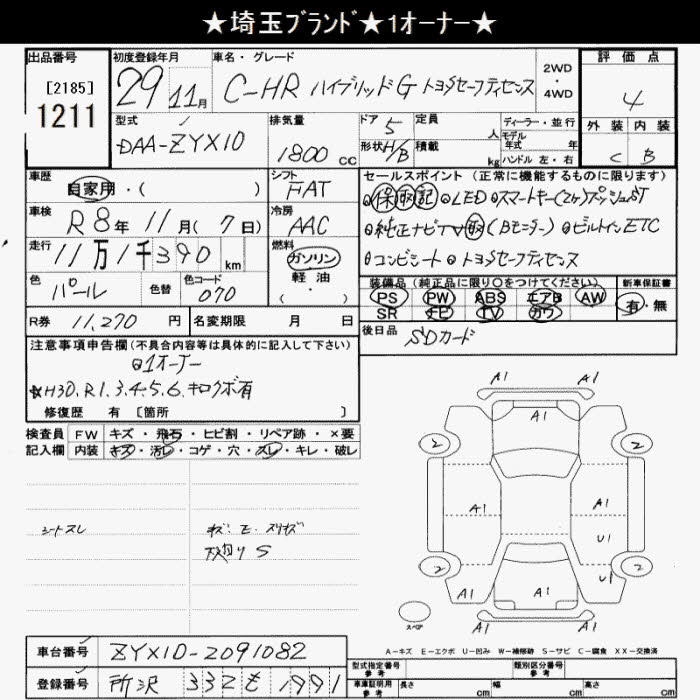 ★埼玉ﾌﾞﾗﾝﾄﾞ★1オーナー★
出品番号
[2185]
1211
初度登録年月
29 11月
車名・グレード
C-HR ハイブリッドG トヨタSセーフティセンス
2WD
・
4WD
評価点
4
外装 内装
C B
型式
DAA-ZYX10
排気量
1800 CC
ドア 5
形状 H/B
定員 人
積載 kg
ディーラー・並行
モデル年式 年
ハンドル 左・右
車歴
自家用・( )
シフト
FAT
車検
R8年 11月(7日)
冷房
AAC
走行
11万1千390 km
燃料
ガソリン
軽油
・( )
色
パール
色替
色コード
070
R券 11,270 円
名変期限 月 日
セールスポイント(正常に機能するものに限ります)
⊙保取記 ⊙LED ⊙スマートキー(2ケ)プッシュST
⊙純正ナビTV取(Bモニター) ⊙ビルトインETC
⊙コンビシート ⊙トヨタSセーフティセンス
装備品(純正品に限り○をつけてください)
PS PW ABS エアB AW
SR ナビ TV カワ
新車保証書
有・無
後日品
SDカード
注意事項申告欄(不具合内容等は具体的に記入して下さい)
⊙1オーナー
☆H30.R1.3.4.5.6.キロクボ有
修復歴 有 [箇所 ]
検査員
記入欄
FW キズ・飛石・ヒビ割・リペア跡・×要
内装 キズ・汚レ・コゲ・穴・スレ・キレ・破レ
シートスレ
キズ・E・スリキズ
下廻りS
A1 A1
A1
2 2
A1 A1
U1
2 2
A1 A1 U1
A1 A1
スペア
A-キズ E-エクボ U-凹み W-補修跡 S-サビ C-腐食 XX-交換済
車台番号 ZYX10-2091082
登録番号 所沢 332 も 1991
型式指定番号
参考
類別区分番号
参考
車庫証明用
参考
長さ cm 幅 cm 高さ cm